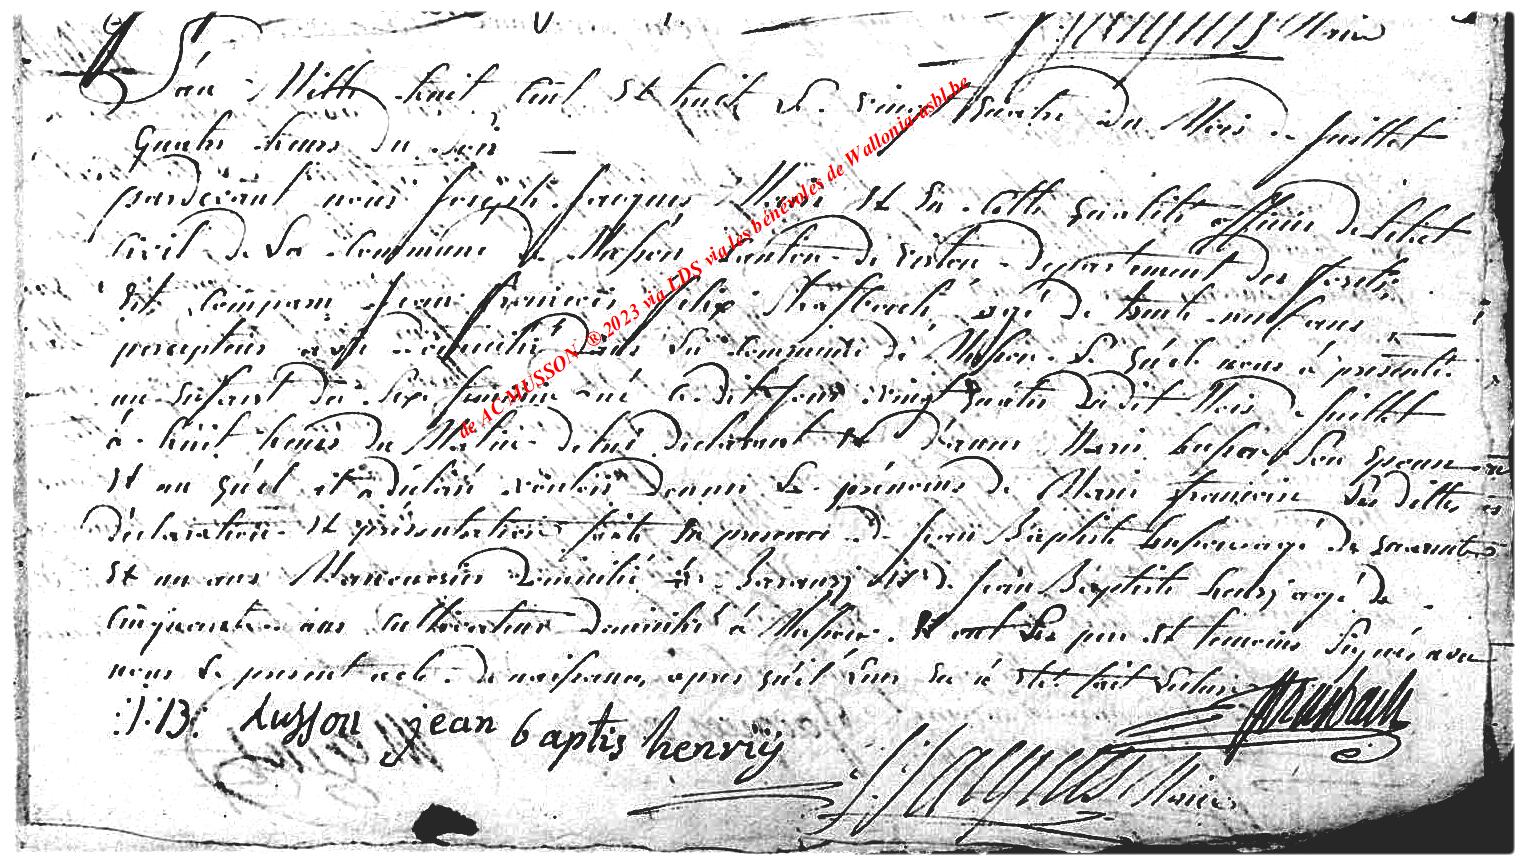 Maire
L'an Mille huit Cent et huit le vingt quatre du Mois de Juillet
quatre heures du soir
pardevant nous Joseph Jacques Maire et en cette qualité officier de l'état
civil de la Commune de Musson Canton de Virton departement des forêts
est comparu Jean françois felix Strasbach agé de trente neuf ans
percepteur domicilié dans la commune de Musson lequel nous à presenté
un Enfant du Sexe feminin né ce dit jour vingt quatre dudit Mois de Juillet
à huit heures du Matin de lui declarant et d'anne Marie Son Epouse
et auquel il a déclaré vouloir donner les prénoms de Marie françoise Les dittes
déclaration et présentation faite En presence de jean Baptiste Lusson agé de quarante
et un ans Manoeuvre Domicilié à Baranzy et de jean Baptiste henry agé de
Cinquante ans Cultivateur Domicilié à Musson. Et ont les pere et temoins Signé avec
nous le present acte de naissance apres qu'il leur en a eté fait lecture
:J:B: Lusson jean baptis henrÿ
J: Jacques Maire
de AC MUSSON ® 2023 via LDS via les bénévoles de Wallonia-asbl.be